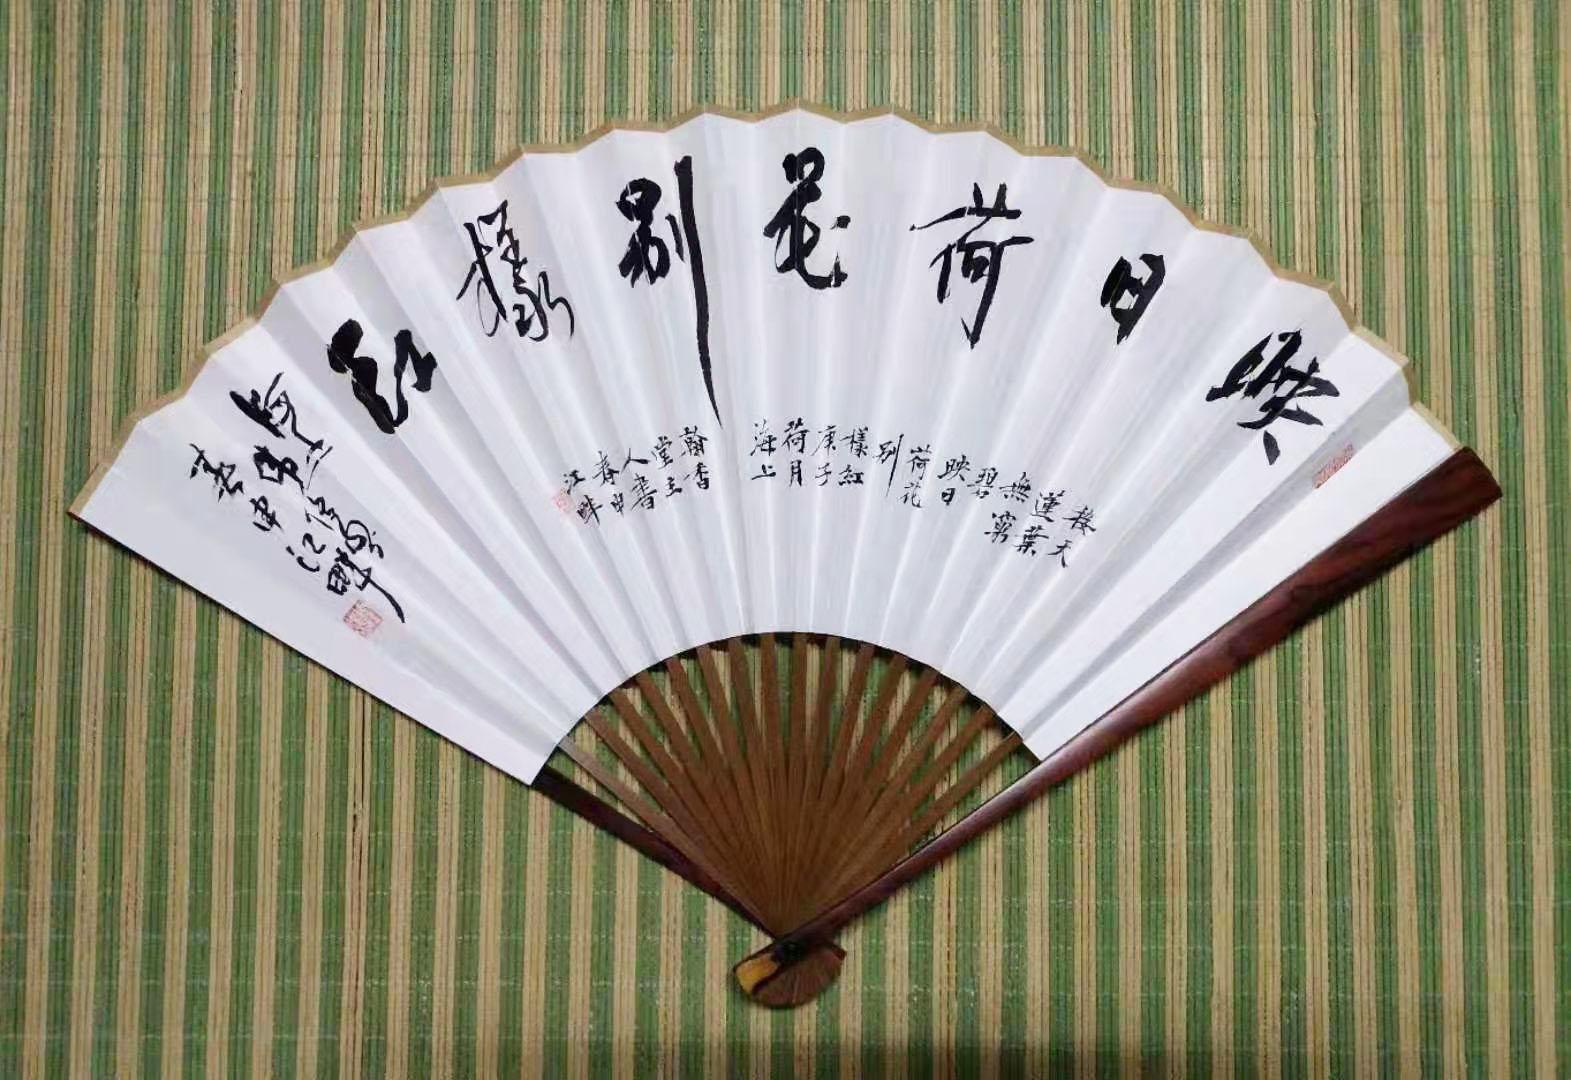 暎日荷花别樣紅
春申江畔
接天
蓮葉
無窮
碧
映日
荷花
别
樣紅
庚子
荷月
海上
翰香
堂主
人書
春申
江畔